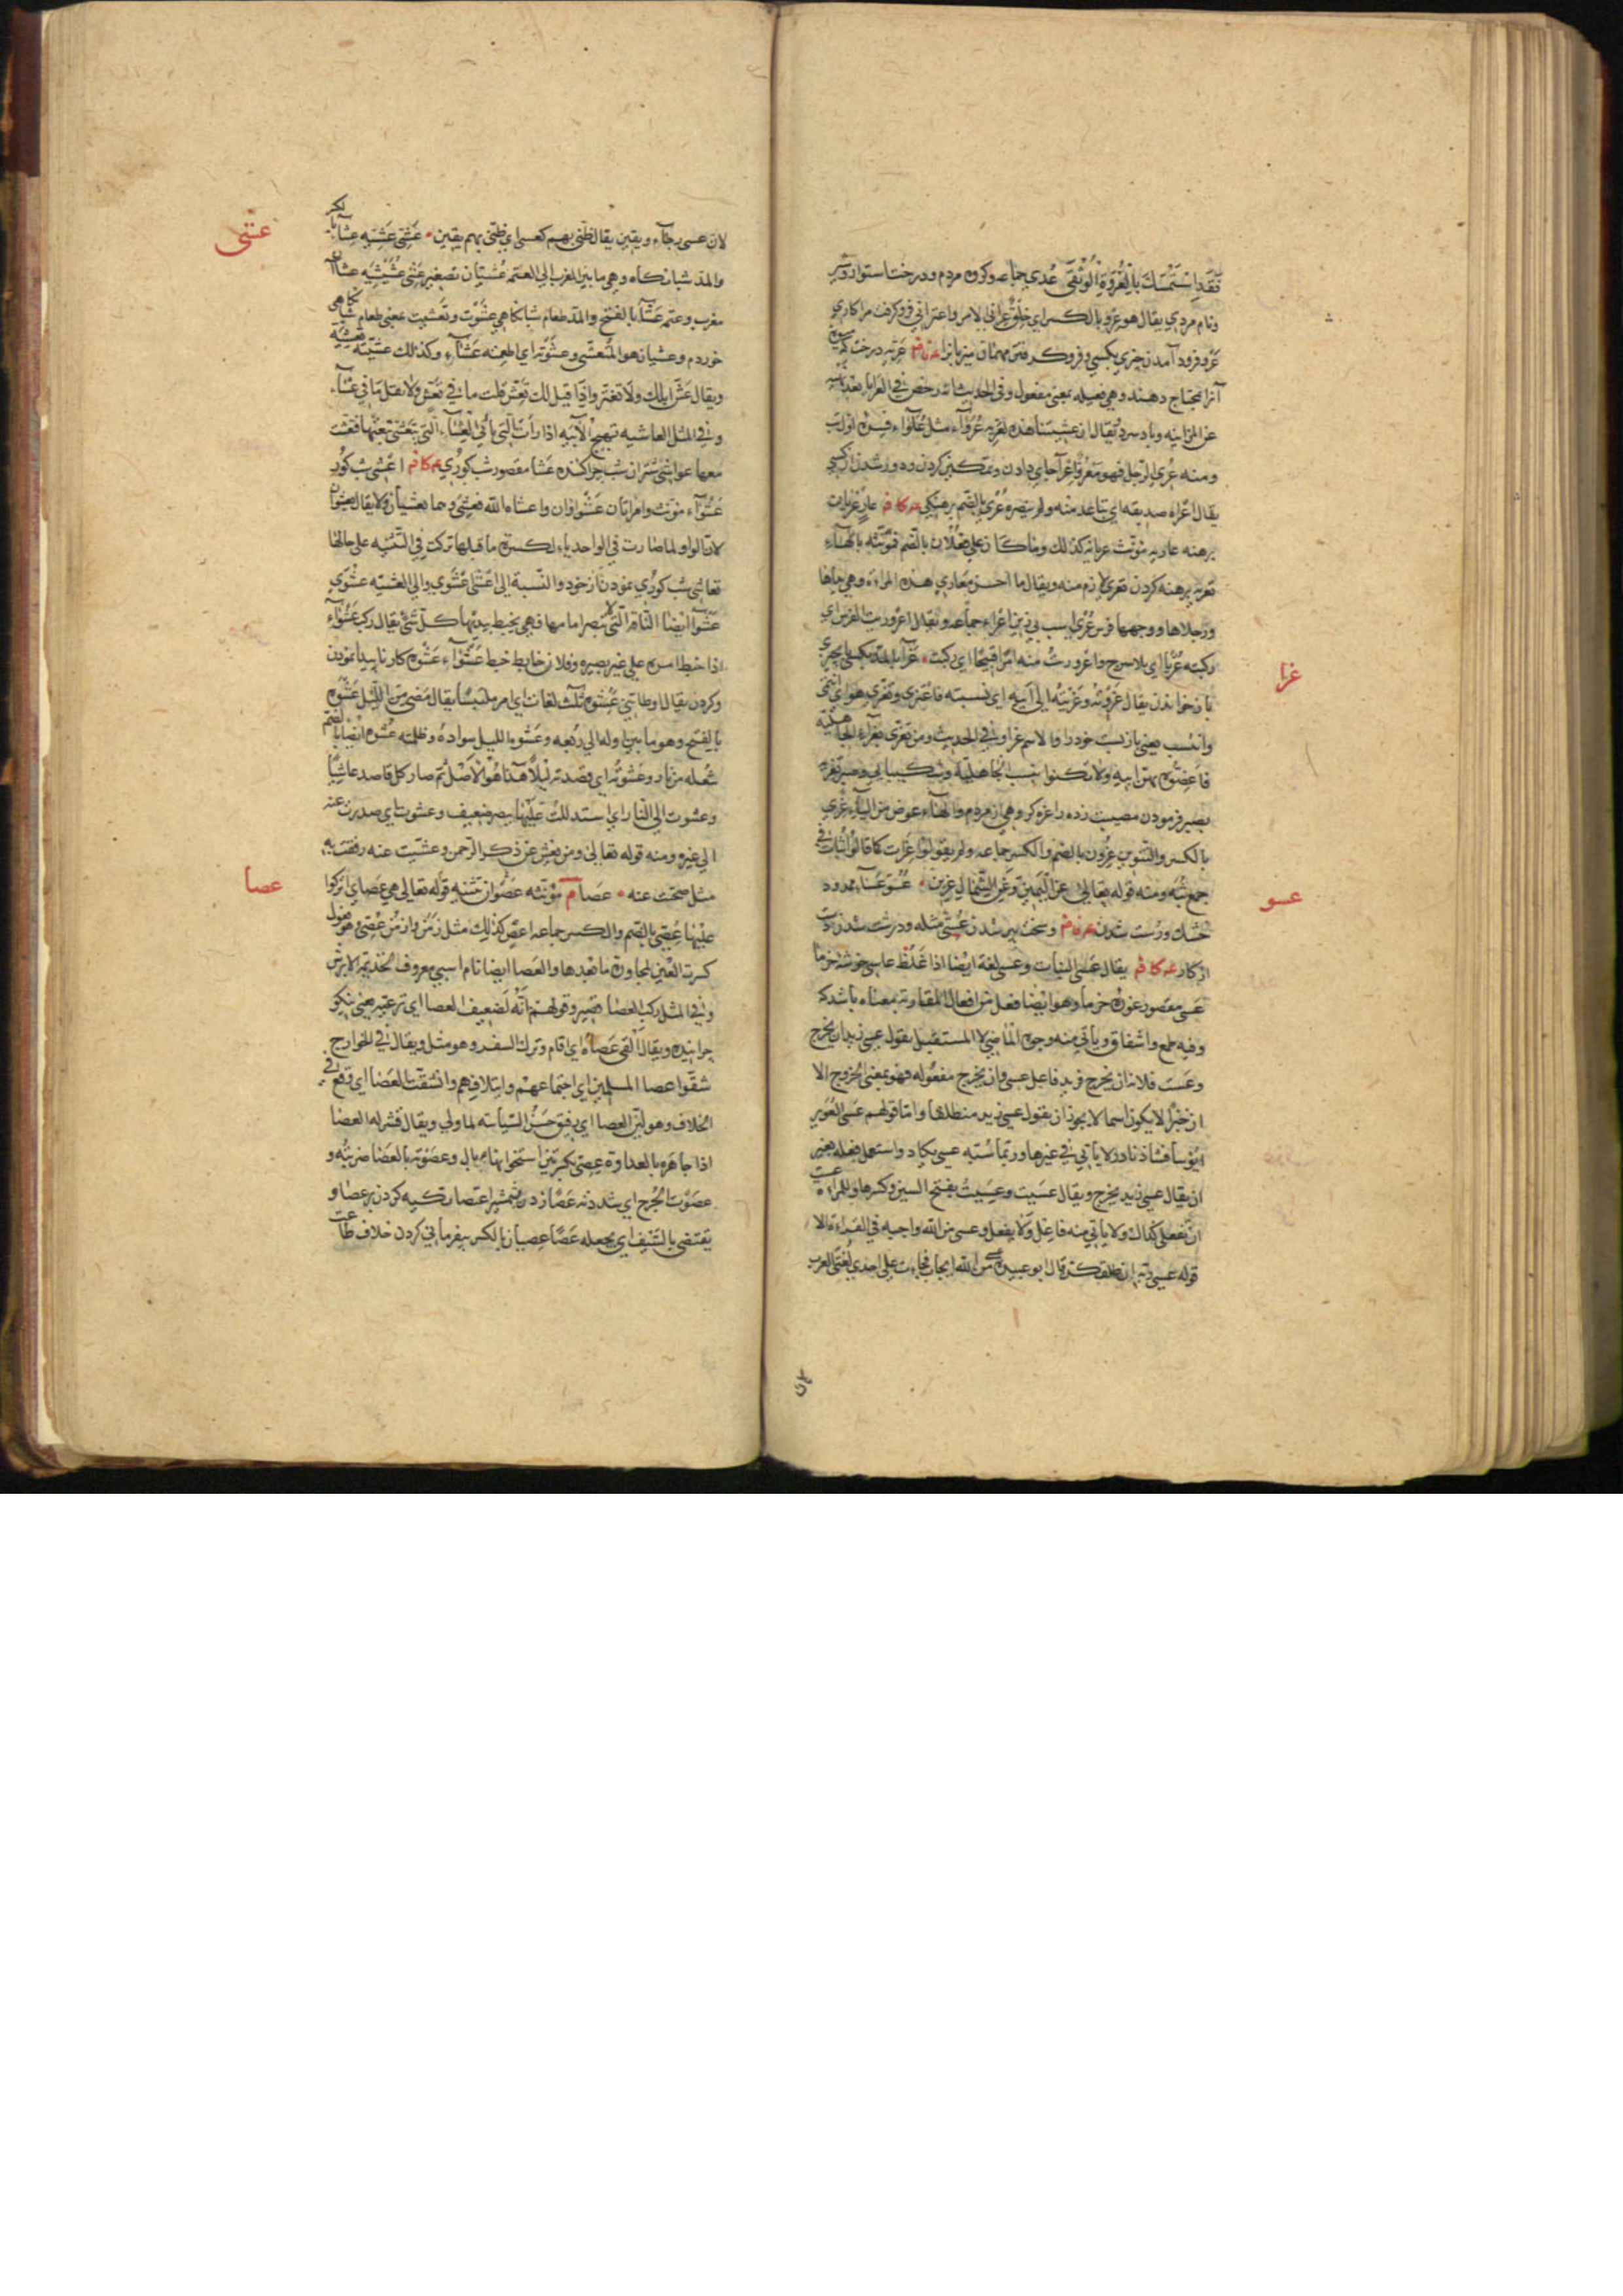 فَقَدِ اسْتَمْسَكَ بِالْعُرْوَةِ الْوُثْقَى عُدي جماعه وكروه مردم ودرخت استوار
ونام مردي يقال هو عرو بالكسر اي خلو عراني الامر واعتراني فروكرفت مرا كاري
عرو فرود آمدن چيزي بكسي وفروكرفتن مهمان ميزبانرا عريه درخت كه
آنرا بمحتاج دهند وهي فعيله بمعنى مفعول وفي الحديث انه رخص في العرايا بعد نهيه
عن المزابنه وباد سرد يقال ان عشيتنا هذه لعريه عُرَوَآء مثل غُلَوَآء
ومنه عُري الرجل فهو مَعْرُوّ
يقال اعراه صديقه اي تباعد منه ولم ينصره عُري بالضم برهنكي عارٍ عريان
برهنه عاريه مؤنث عريانه كذلك وما كان على فعلان بالضم فمؤنثه بالهآء
تعريه برهنه كردن تعري لازم منه ويقال ما احسن معاري هذه المراءة وهي يداها
ورجلاها ووجهها فرس عُرْي اسب بي زين اعراء جماعه ويقال اعروريت الفرس اي
ركبته عُرْيا اي بلا سرج واعروريت منه امرا قبيحا اي ركبت • عَزآء بالمد
عزا
باز خواندن يقال عَزَوْتُه وعَزَيْتُه الى ابيه اي نسبته فاعتزى وتعزى هو اي انتمى
وانتسب يعني بازبست خودرا والاسم عزاء وفي الحديث ومن تعزى بعزاء الجاهلية
فاعضوه بهن ابيه ولا تكنوا نسب الجاهلية وشكيبايي وصبر تعزيه
بصبر فرمودن مصيبت زده را عزه كروهي از مردم والهاء عوض من الياء عِزًى
بالكسر والتنوين عِزُون بالضم والكسر جماعه ولم يقولوا عزات كما قالوا ثبات في
جمع ثبة ومنه قوله تعالى عن اليمين وعن الشمال عزين • عُسُوّ عَسآء ممدود
عسو
خشك ودرشت شدن وسخت پير شدن عُسِيّ مثله ودرشت شدن دست
از كار يقال عسى النبات وعسي لغة ايضا اذا غلظ عاسي خوشهٔ خرما
عَسى مقصور غورهٔ خرما وهو ايضا فعل من افعال المقاربة بمعناه باشد كه
وفيه طمع واشفاق ويأتي منه وجوه الماضي لا المستقبل يقول عسى زيد ان يخرج
وعست فلانة ان يخرج فزيد فاعل عسى وان يخرج مفعوله فهو بمعنى الخروج الا
ان خبره لا يكون اسما لا يجوز ان يقول عسى زيد منطلقا واما قولهم عسى الغوير
ابؤسا فشاذ نادر لا يأتي في غيرها وربما شبه عسى بكاد واستعمل فعله بغير
ان يقال عسى زيد يخرج ويقال عسَيت وعسِيت بفتح السين وكسرها وللمراءة عست
ان تفعل كذاك ولا يأتي منه فاعل ولا يفعل وعسى من الله واجبه في القراءة الا
قوله عسى ربه ان طلقكن قال ابو عبيدة عسى من الله ايجاب فجاءت على احدى لغتي العرب
لان عسى رجآء ويقين يقال ظني بهم كعسى اي ظني بهم يقين • عَشِيّ عَشِيّه عِشاء بالكسر
عشى
والمد شبانكاه وهي ما بين المغرب الى العتمه عُشَيان تصغير عَشِيّ عُشَيْشِيَه عشاآن
مغرب وعتمه عَشآء بالفتح والمد طعام شبانكاهي عَشَوْت وتعشيت يعني طعام شبانكاهي
خوردم وعشيان هو المتعشي وعشوته اي اطعمته عَشآء وكذلك عشيته تعشيه
ويقال عَشّ ابلك ولا تغتر واذا قيل لك تعش قلت ما بي تَعَشٍّ ولا تقل ما بي عَشآء
وفي المثل العاشيه تهيج الآبيه اذا رات التي تأبى العشآء التي تتعشى تبعتها فتعشت
معها عواشي شتران شب چراكننده عَشا مقصور شب كوري اعشى شب كور
عَشْوآء مؤنث وامراتان عَشْواوان واعشاه الله فعشي وهما يعشيان ولا يقال يعشوان
لان الواو لما صارت في الواحد ياء لكسرة ما قبلها تركت في التثنيه على حالها
تعاشي شب كوري نمودن از خود والنسبة الى اعشى عشوي والى العشيه عشوي
عَشْوآ ايضا الناقة التي لا تبصر امامها فهي يخبط بيديها كل شيء يقال ركب عَشْواء
اذا خبط امره على غير بصيره وفلان خابط خبط عَشْوآء عَشْوه كار ناپيدا نمودن
وكردن يقال اوطاتني عشوه ثلث لغات اي امر ملتبسا يقال مضى من الليل عَشْوه
بالفتح وهو ما بين اوله الى ربعه وعَشْوة الليل سواده وظلمته عشوه ايضا بالضم
شعله من نار وعشوته اي قصدته ليلا هذا هو الاصل ثم صار كل قاصد عاشيا
وعشوت الى النار اي استدللت عليها ببصر ضعيف وعشوت اي صدرت عنه
الى غيره ومنه قوله تعالى ومن يعش عن ذكر الرحمن وعشيت عنه رفقت به
مثل صحت عنه • عصا م مؤنثه عَصَوان تثنيه قوله تعالى هي عصاي اتوكؤا
عصا
عليها عُصِيّ بالضم والكسر جماعه اعصٍ كذلك مثل زمن وازمن عُصِيّ وهو فعول
كسرت العين لمجاورة ما بعدها والعصا ايضا نام اسبي معروف لجذيمة الابرش
وفي المثل ركب العصا قصير وقولهم انه لضعيف العصا اي ترعيته يعني نيكو
چراننده ويقال القى عصاه اي اقام وترك السفر وهو مثل ويقال في الخوارج
شقوا عصا المسلمين اي اجتماعهم وايتلافهم وانشقت العصا اي وقع في
الخلاف وهو لين العصا اي رفيق حسن السياسة لما ولي ويقال قشر له العصا
اذا جاهره بالعداوة وعصوته بالعصا ضربته و
عصوت الجرح اي شددته عَصًا زدن بشمشير اعتصا تكيه كردن بر عصا و
يعتصي بالسيف اي يجعله عَصًا عصيان بالكسر بيفرماني كردن خلاف طاعت